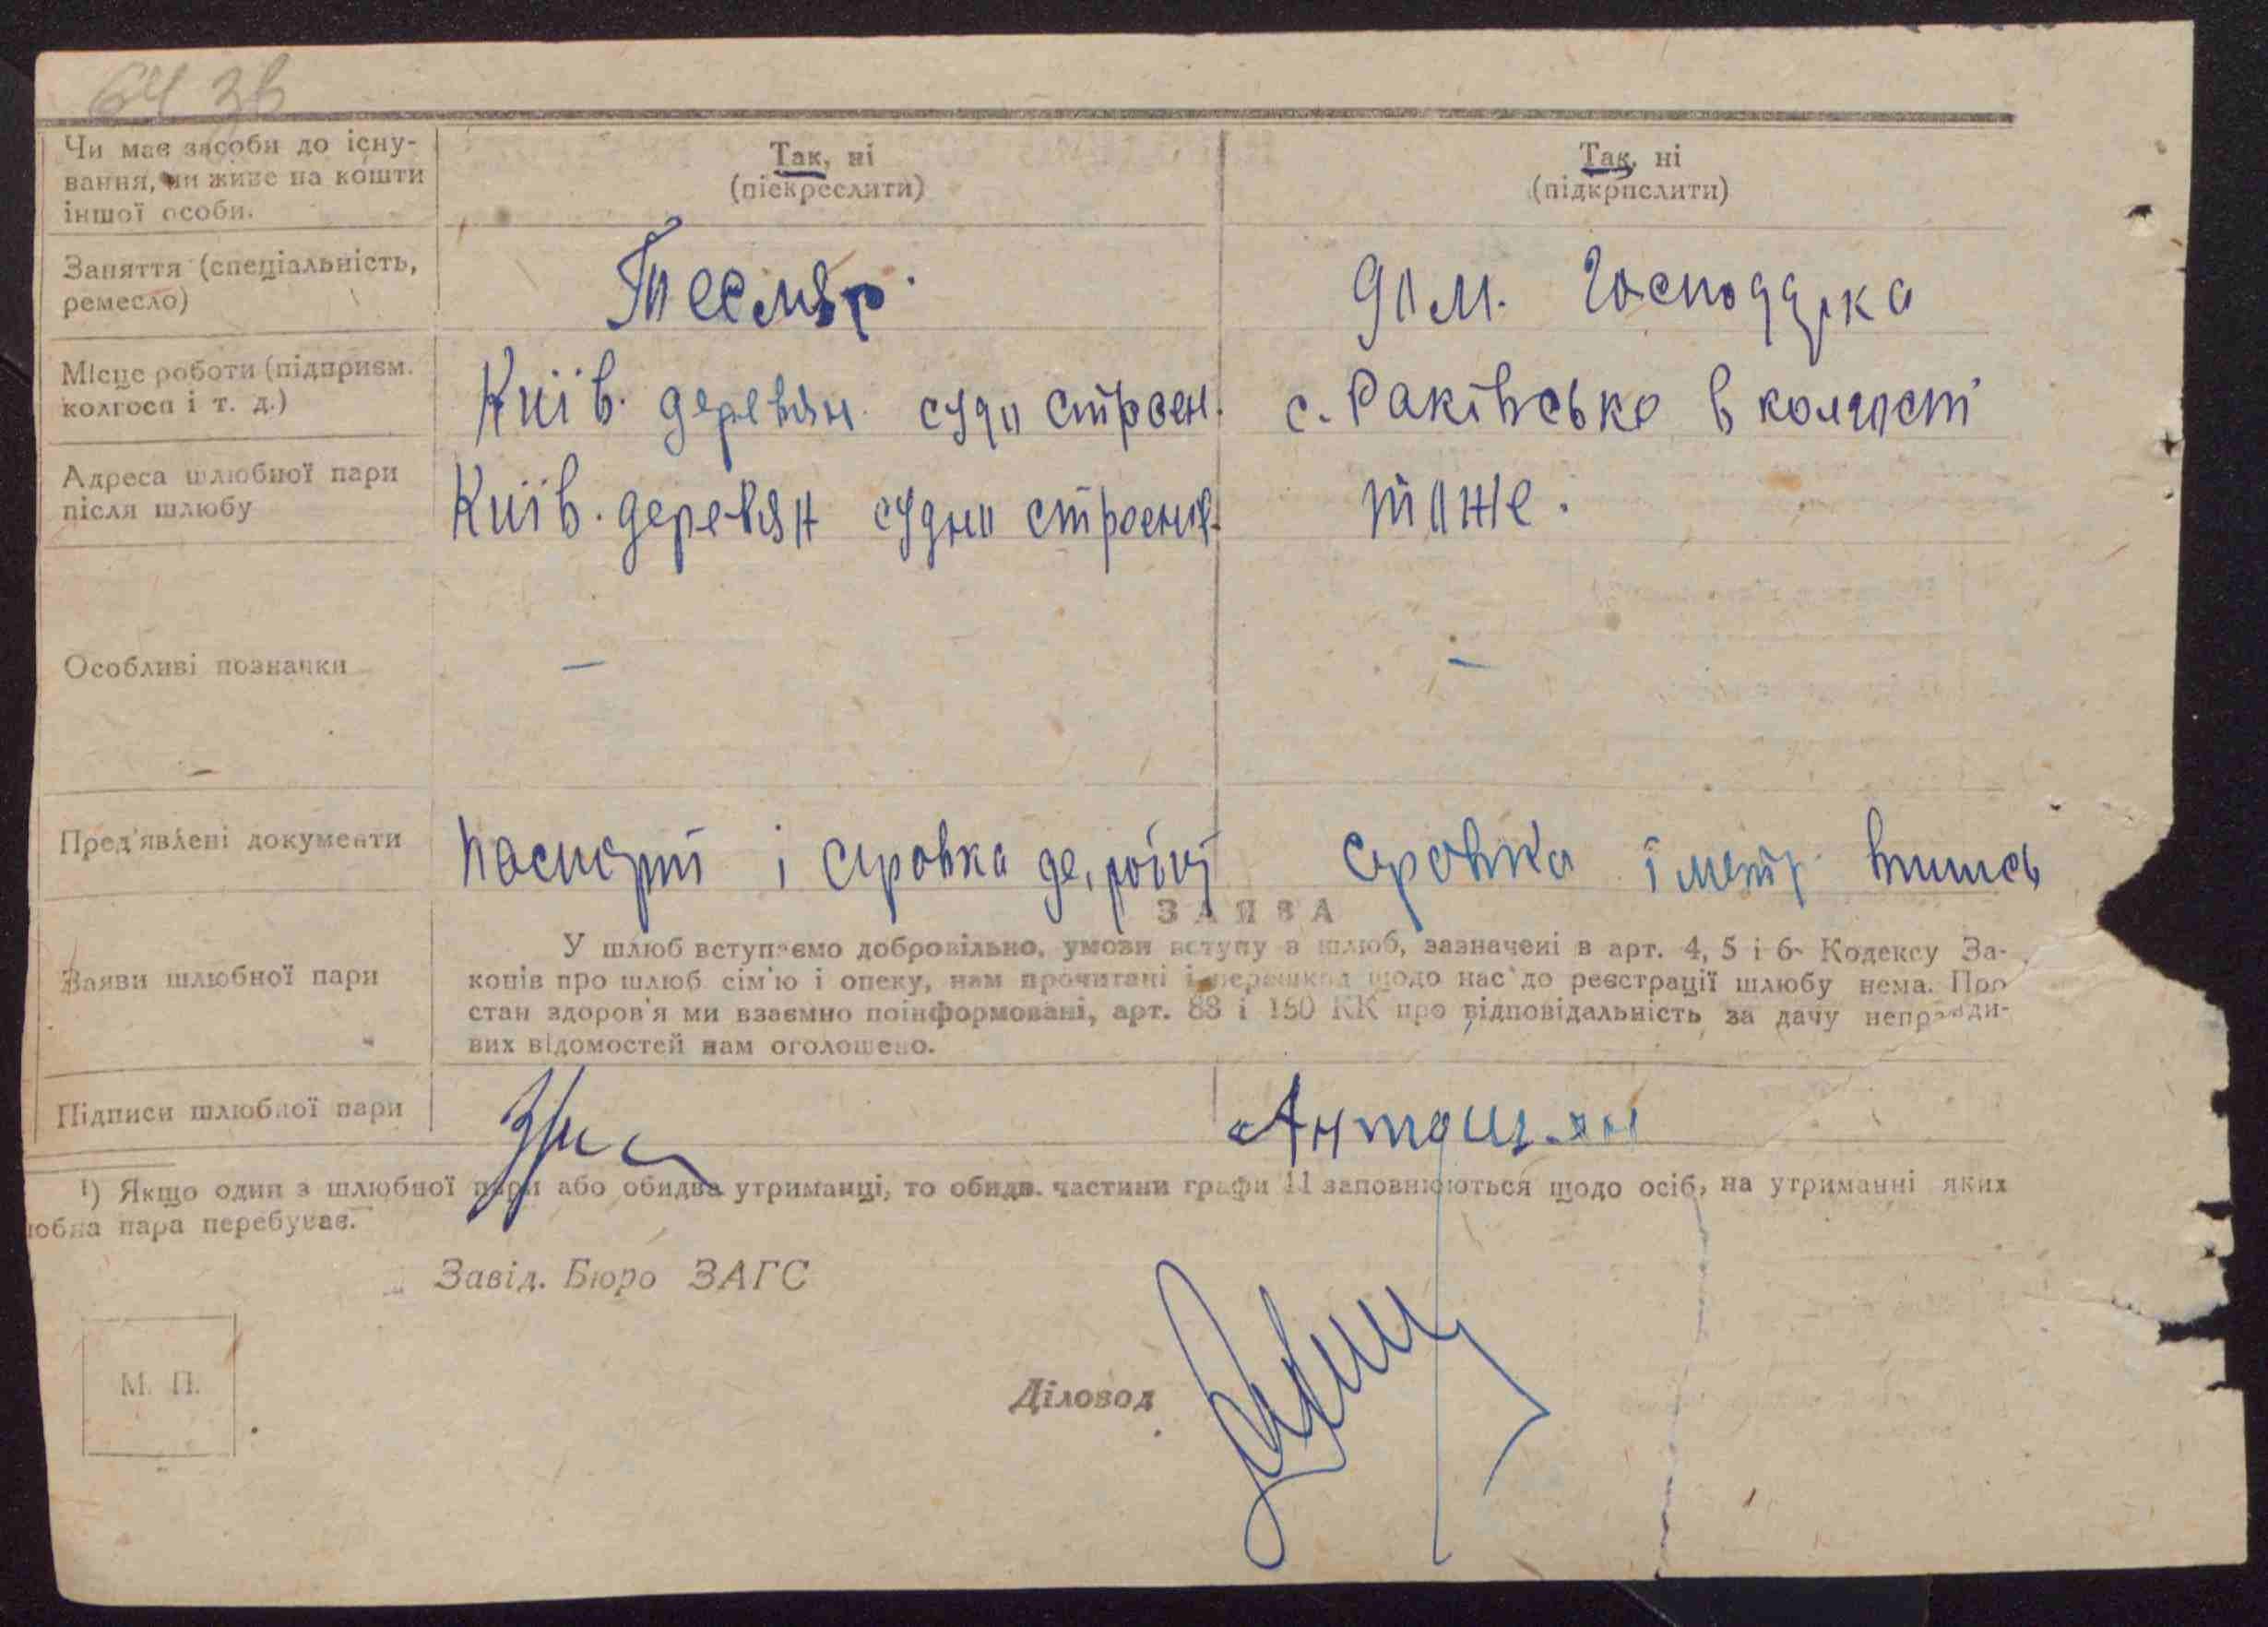 64 зв
Чи має засоби до існу-
вання, чи живе на кошти
іншої особи.
Так, ні
(піекреслити)
Так, ні
(підкрпслити)
Заняття (спеціальність,
ремесло)
Тесляр.
дом. Господарка
Місце роботи (підприєм.
колгосп і т. д.)
Київ. деревян. судо строен.
с. Раківсько в колгості
Адреса шлюбної пари
після шлюбу
Київ. деревян судно строение.
тоже.
Особливі позначки
—
—
Пред'явлені документи
паспорт і справка
справка і метр. випись
Заяви шлюбної пари
ЗАЯВА
У шлюб вступаємо добровільно, умови вступу в шлюб, зазначені в арт. 4, 5 і 6 Кодексу За-
конів про шлюб сім'ю і опеку, нам прочитані і перешкод щодо нас до реєстрації шлюбу нема. Про
стан здоров'я ми взаємно поінформовані, арт. 88 і 180 КК про відповідальність за дачу неправди-
вих відомостей нам оголошено.
Підписи шлюбної пари
¹) Якщо один з шлюбної пари або обидва утриманці, то обидв. частини графи 11 заповнюються щодо осіб, на утриманні яких
юбна пара перебуває.
Завід. Бюро ЗАГС
М. П.
Діловод